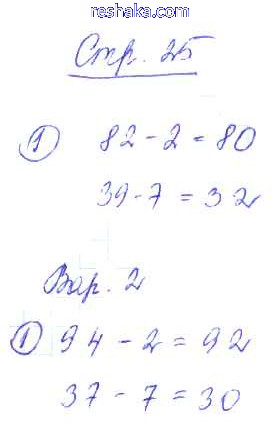 reshaka.com
Стр. 25
① 82 - 2 = 80
39 - 7 = 32
Вар. 2
① 94 - 2 = 92
37 - 7 = 30